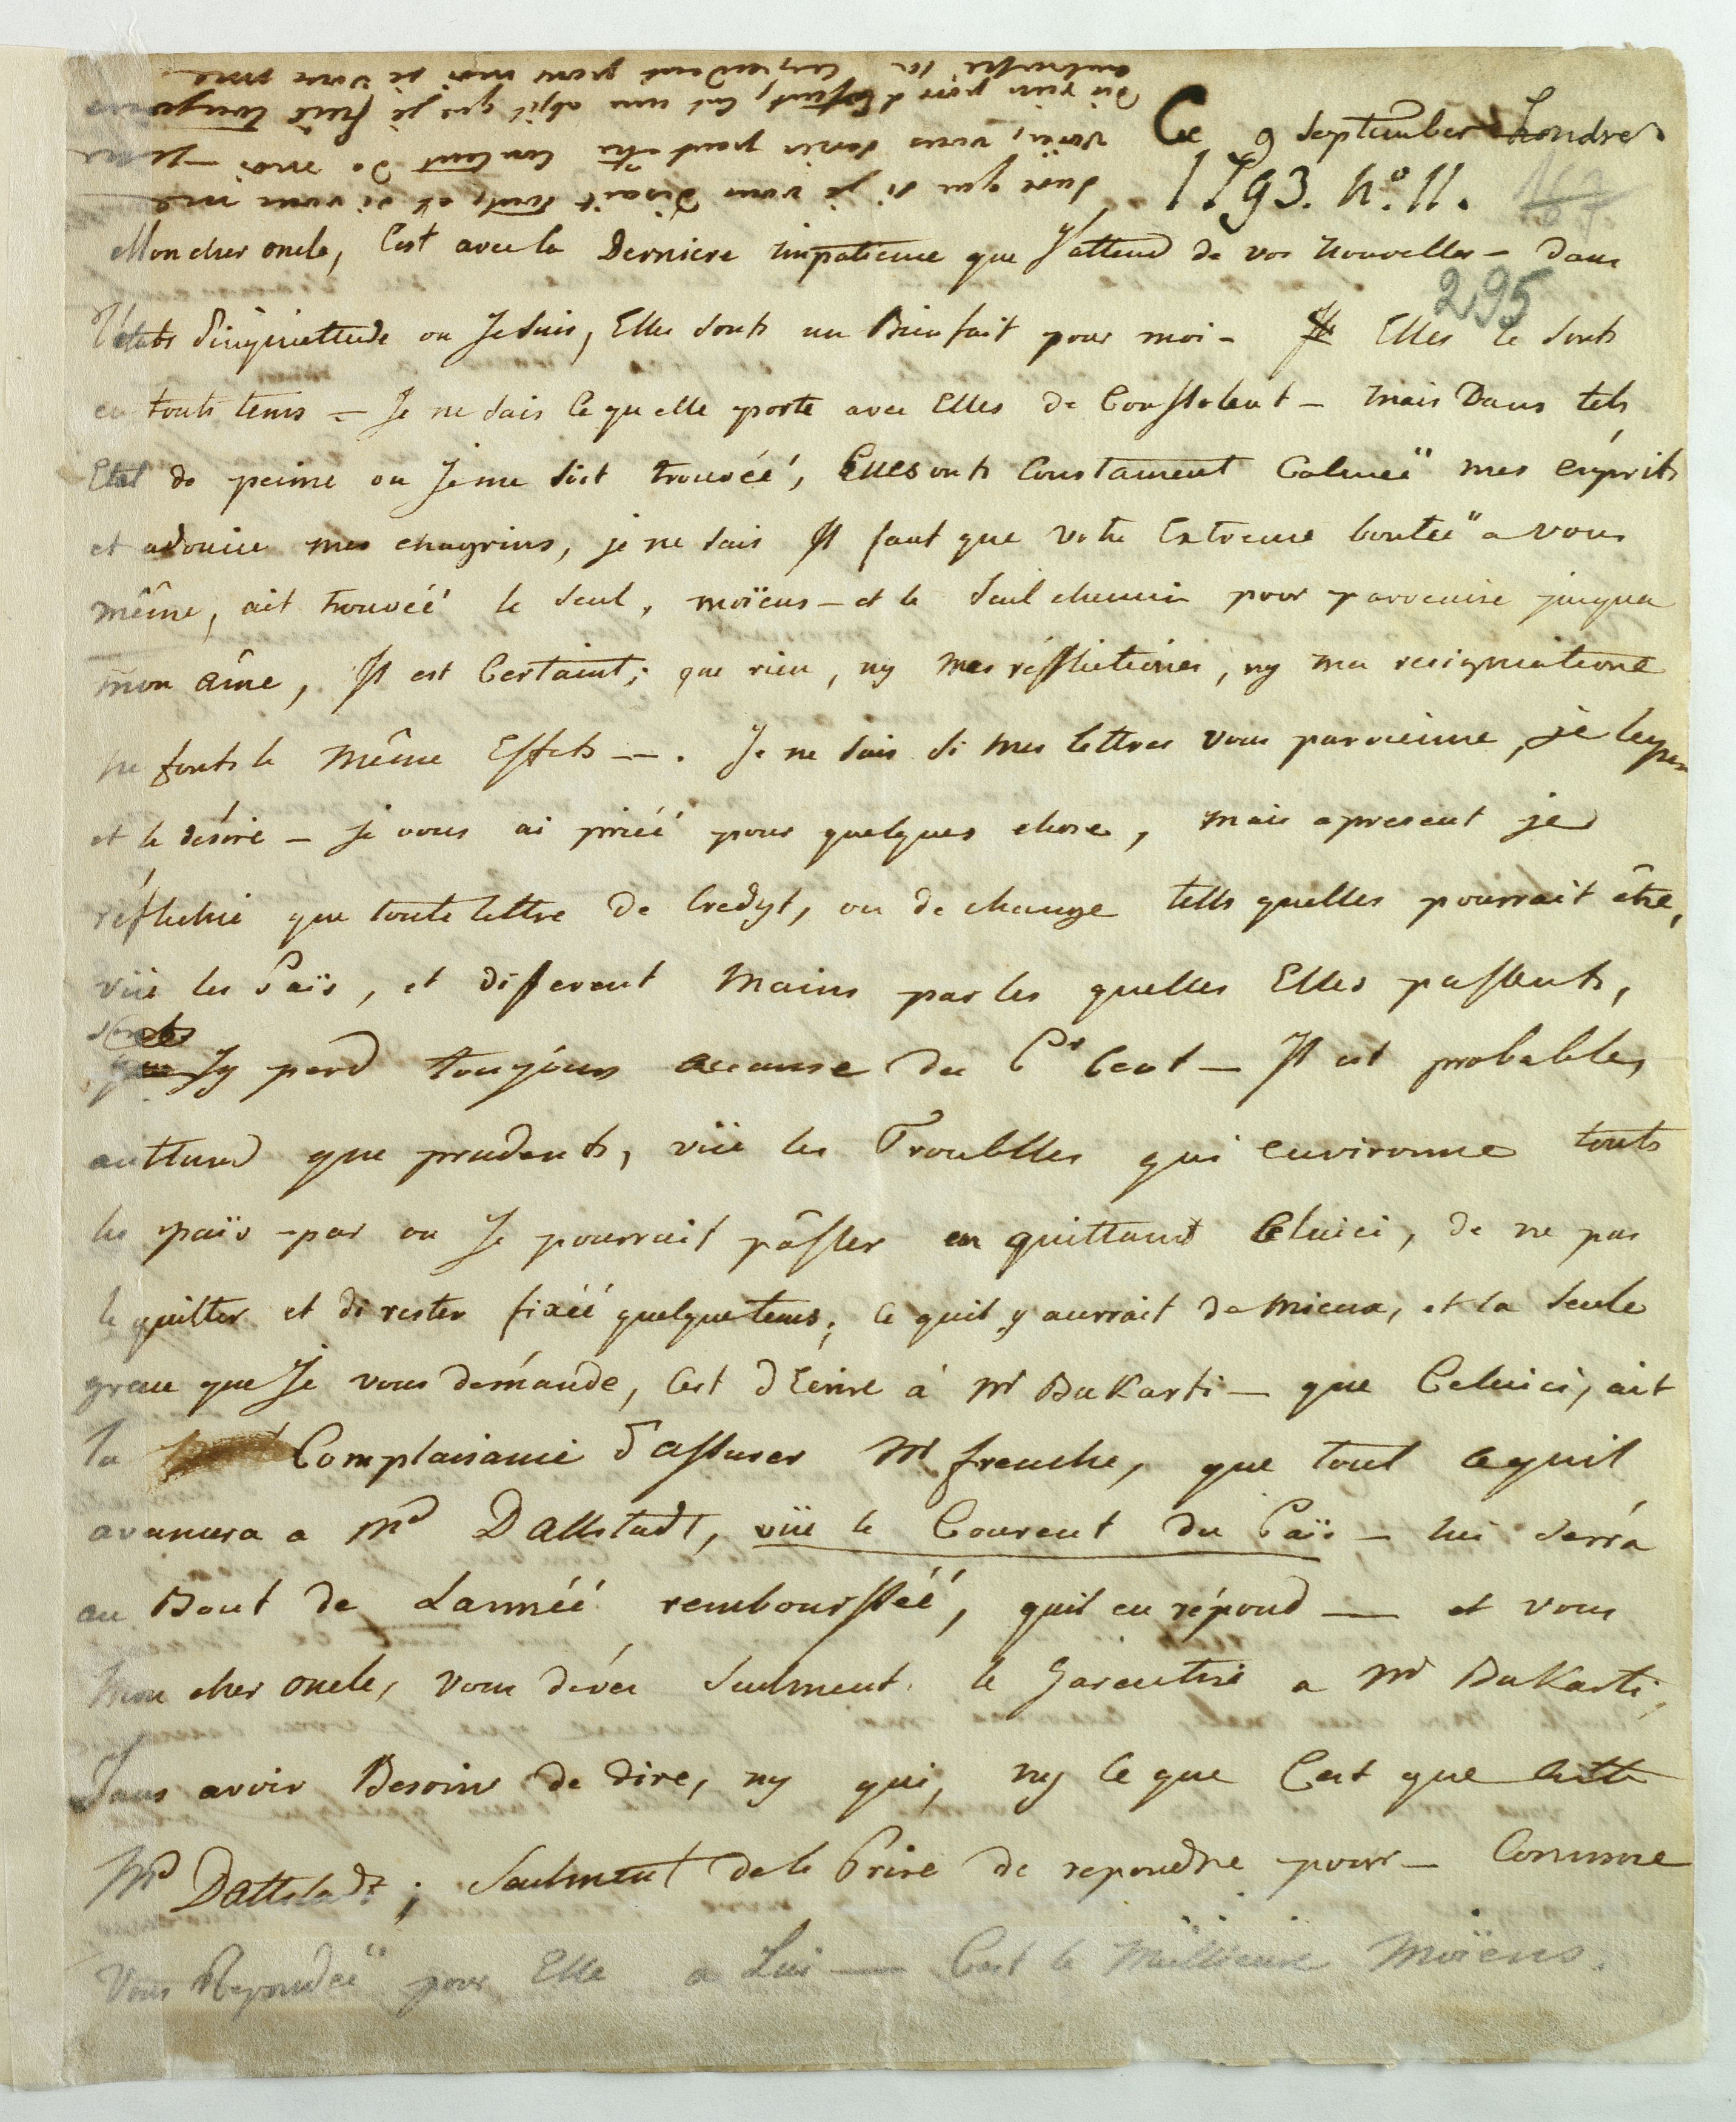 Ce 9 September Londres
1793. No. 11.
295
Mon cher oncle, C'est avec la Derniere impatience que J'attend de vos Nouvelles - dans
l'états d'inquiettude ou Je suis, Elles sonts un Bienfait pour moi - Elles le sonts
en touts tems - Je ne sais ce qu elle porte avec Elles de Consolent - mais Dans tels
Etat de peine ou Je me soit trouvéé, Elles onts Constament Calmeë mes ésprits
et adoucie mes chagrins, je ne sais Il faut que votre Extreme bonteë a vous
même, ait trouvéé le seul, moïens - et le seul chemin pour parvenire jusqua
mon âme, Il est Certaint; que rien, ny mes réfflictiones, ny ma resignatione
ne fonts le même Effets -. Je ne sais si mes lettres vous parvienne, je lespere
et le désire - je vous ai priéé pour quelques chose, mais apresent je
réflichie que toute lettre de Credyt, ou de change tells quelles pourrait être,
vüe les Païs, et diferent Mains par les quelles Elles passents,
Jy perd toujours accause du Pr Cent - Il est probable,
auttend que prudents, vüe les Troublles qui environne touts
les païs - par ou Je pourrait pâsser en quittant Celuici, de ne pas
le quitter et di rester fixéé quelque tems; ce quil y aurrait de mieux, et la seule
grace que Je vous démande, Cest d'Ecrire à Mr Bukarti - que Celuici, ait
la Complaisance d'assurer Mr frenche, que tout cequil
avancera a Md Dallstadt, vüe le Courent du Païs - lui serrá
au Bout de Lannéé rembourssèé, quil en répond - et vous
Mon cher oncle, vous dévéz Seulment le Garentire a Mr Bukarti,
Sans avoir Besoins de dire, ny qui, ny ce que Cest que cette
Md Dallstadt; Seulment de le Prire de repondre pour - Comme
Vous Repondeë pour Elle a Lui - Cest le Meillieure Moïens.
Suré que si je vous disait touts, et si vous me
voïez, vous seriez peut être Content de moi -